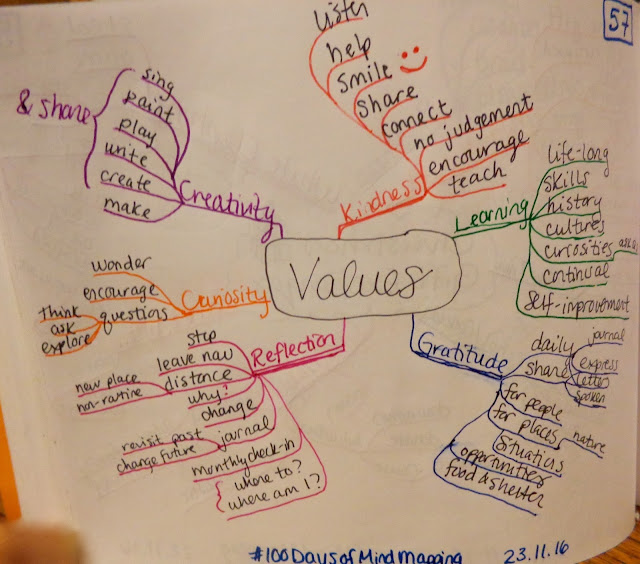 57
Values
Kindness
listen
help
smile
share
connect
no judgement
encourage
teach
Learning
life-long
skills
history
cultures
curiosities
continual
self-improvement
Gratitude
daily
share
journal
express
letters
spoken
for people
for places
nature
situations
opportunities
food & shelter
Reflection
stop
leave nau
distance
new place
non-routine
why?
change
journal
revisit past
change future
monthly check-in
where to?
where am I?
Curiosity
wonder
encourage
questions
think
ask
explore
Creativity
sing
paint
play
write
create
make
& share
#100DaysofMindMapping
23.11.16